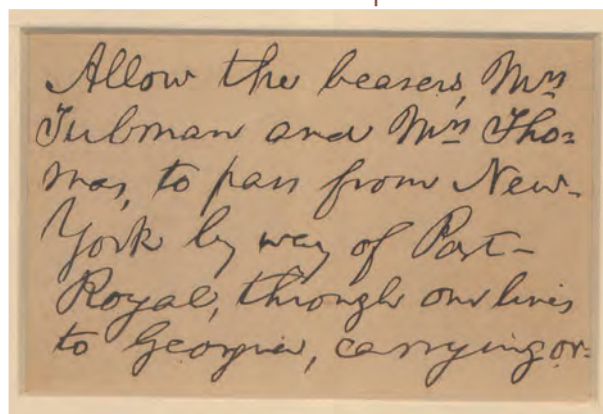 Allow the bearers, Mrs
Tubman and Mrs Tho-
mas, to pass from New-
York by way of Port-
Royal, through our lines
to Georgia, carrying or-